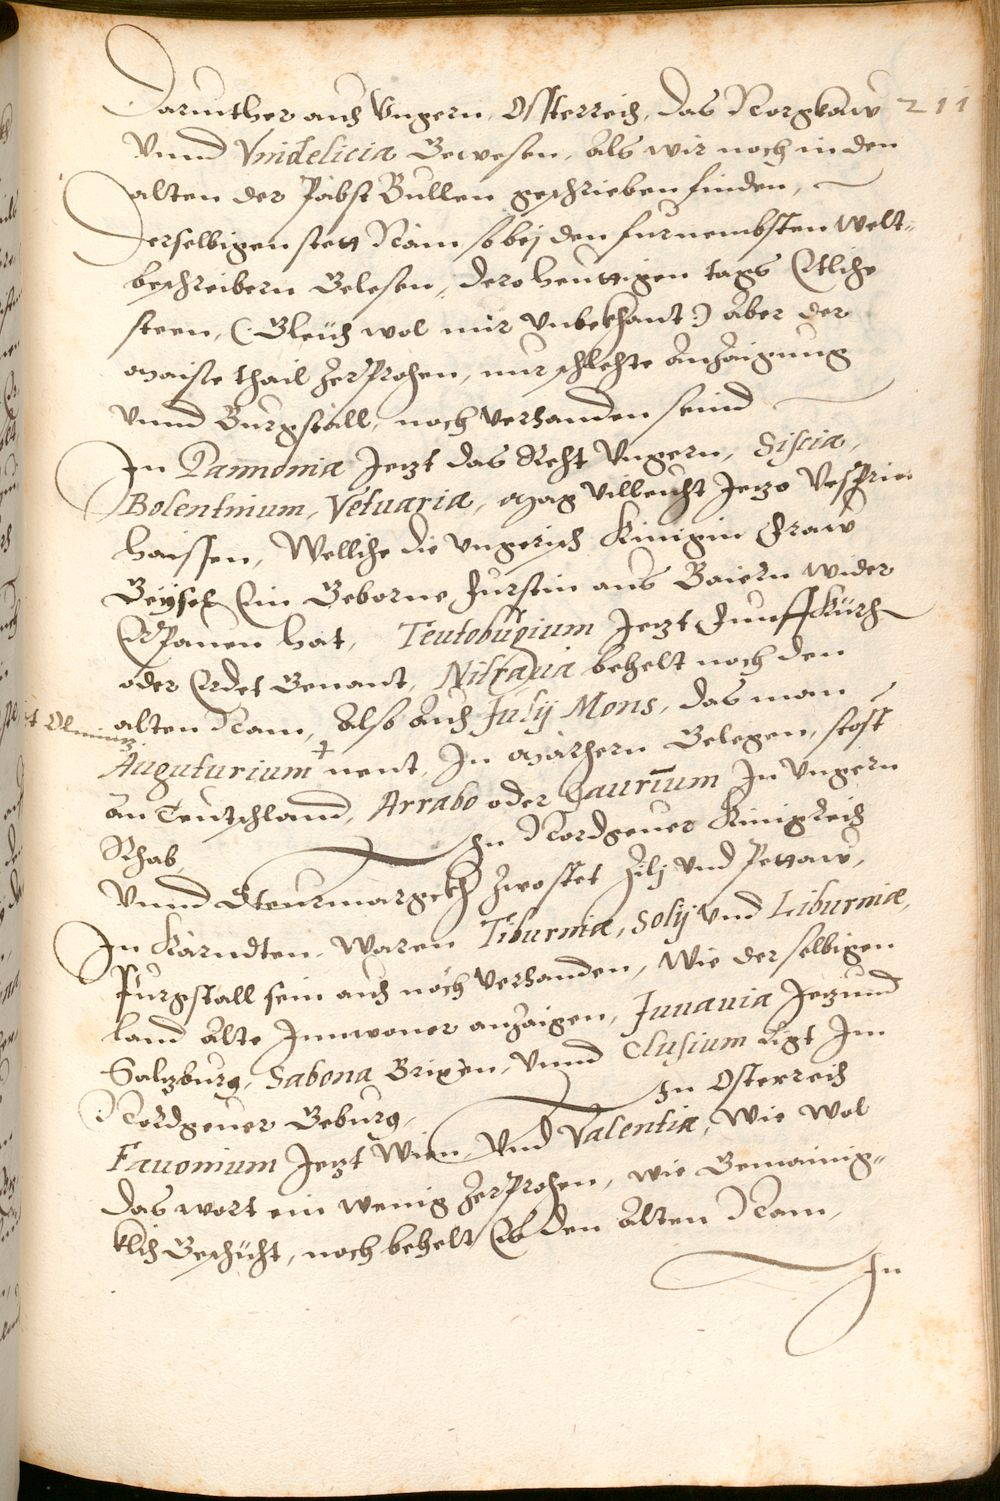 Darunther auch Vngern, Osterreich, das Norgkaw 211
Vnnd Vnidelicia Gewesen, als wir noch in den
alten der Päbst Bullen geschrieben finden,
Derselbigen stett Näm so bej den furnembsten welt-
beschreibern Gelesen, dero heuttigen tags Etliche
steen, (Gleich wol mir Vnbekhant) aber der
maiste thail Zerprochen, nur schlechte anzaigung
vnnd Burgstall, noch Verhanden seind
In Pannonia Jetzt das Recht Vngern, Siscia,
Bolentnium, Vetuaria, mag villeucht Jetzo Vesprin
haissen, Wellche die vngerisch Kinigin Fraw
Geysel Ein Geborne Furstin aus Baiern wider
Erpauen hat, Teutobúgium Jetzt Funffkürch
oder Erdet Genant, Nitravia behelt noch den
alten Nam, also auch Julij Mons, das man
t Olmintz
Auguturium + nent, In märhern Gelegen, stost
an Teutschland, Arrabo oder Jaurium In Vngern
Rhab, In Nordgeuer Kinigreich
Vnnd Steurmargckh zwo stet Zilj vnd Pettaw,
In Kärndten, Waren Tiburniæ, Solij vnd Liburniæ,
Purgstall sein auch noch Verhanden, Wie der selbigen
land alte Innwoner anzaigen, Juuauia Jetzund
Saltzburg, Sabona Brixen, Vnnd Clusium ligt Im
Nordgeuer Geburg, In Osterreich
Fauonium Jetzt Wien Vnd Valentia, Wie wol
das wort ein wenig Zerprochen, wie Gemainig-
klich Geschicht, noch behelt Es den alten Nam,
In